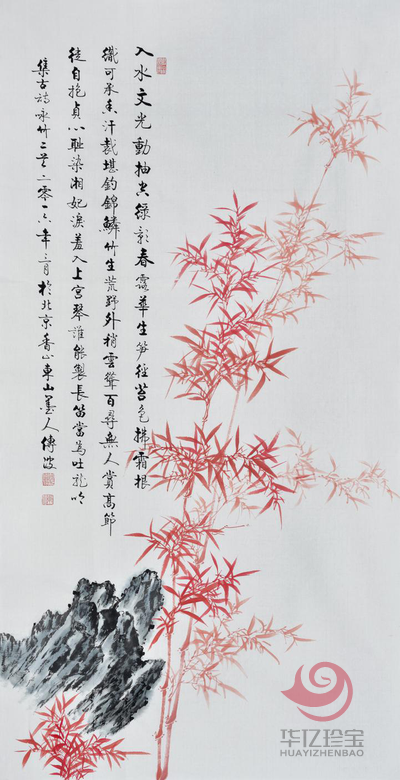 入水文光動抽空綠影春露華生笋徑苔色拂霜根
織可承香汗裁堪釣錦鱗竹生荒野外梢雲聳百尋無人賞高節
徒自抱貞心恥染湘妃淚羞入上宮琴誰能製長笛當為吐龍吟
集古詩詠竹二首二零一六年三月於北京香山東山墨人傅波
华亿珍宝
HUAYIZHENBAO